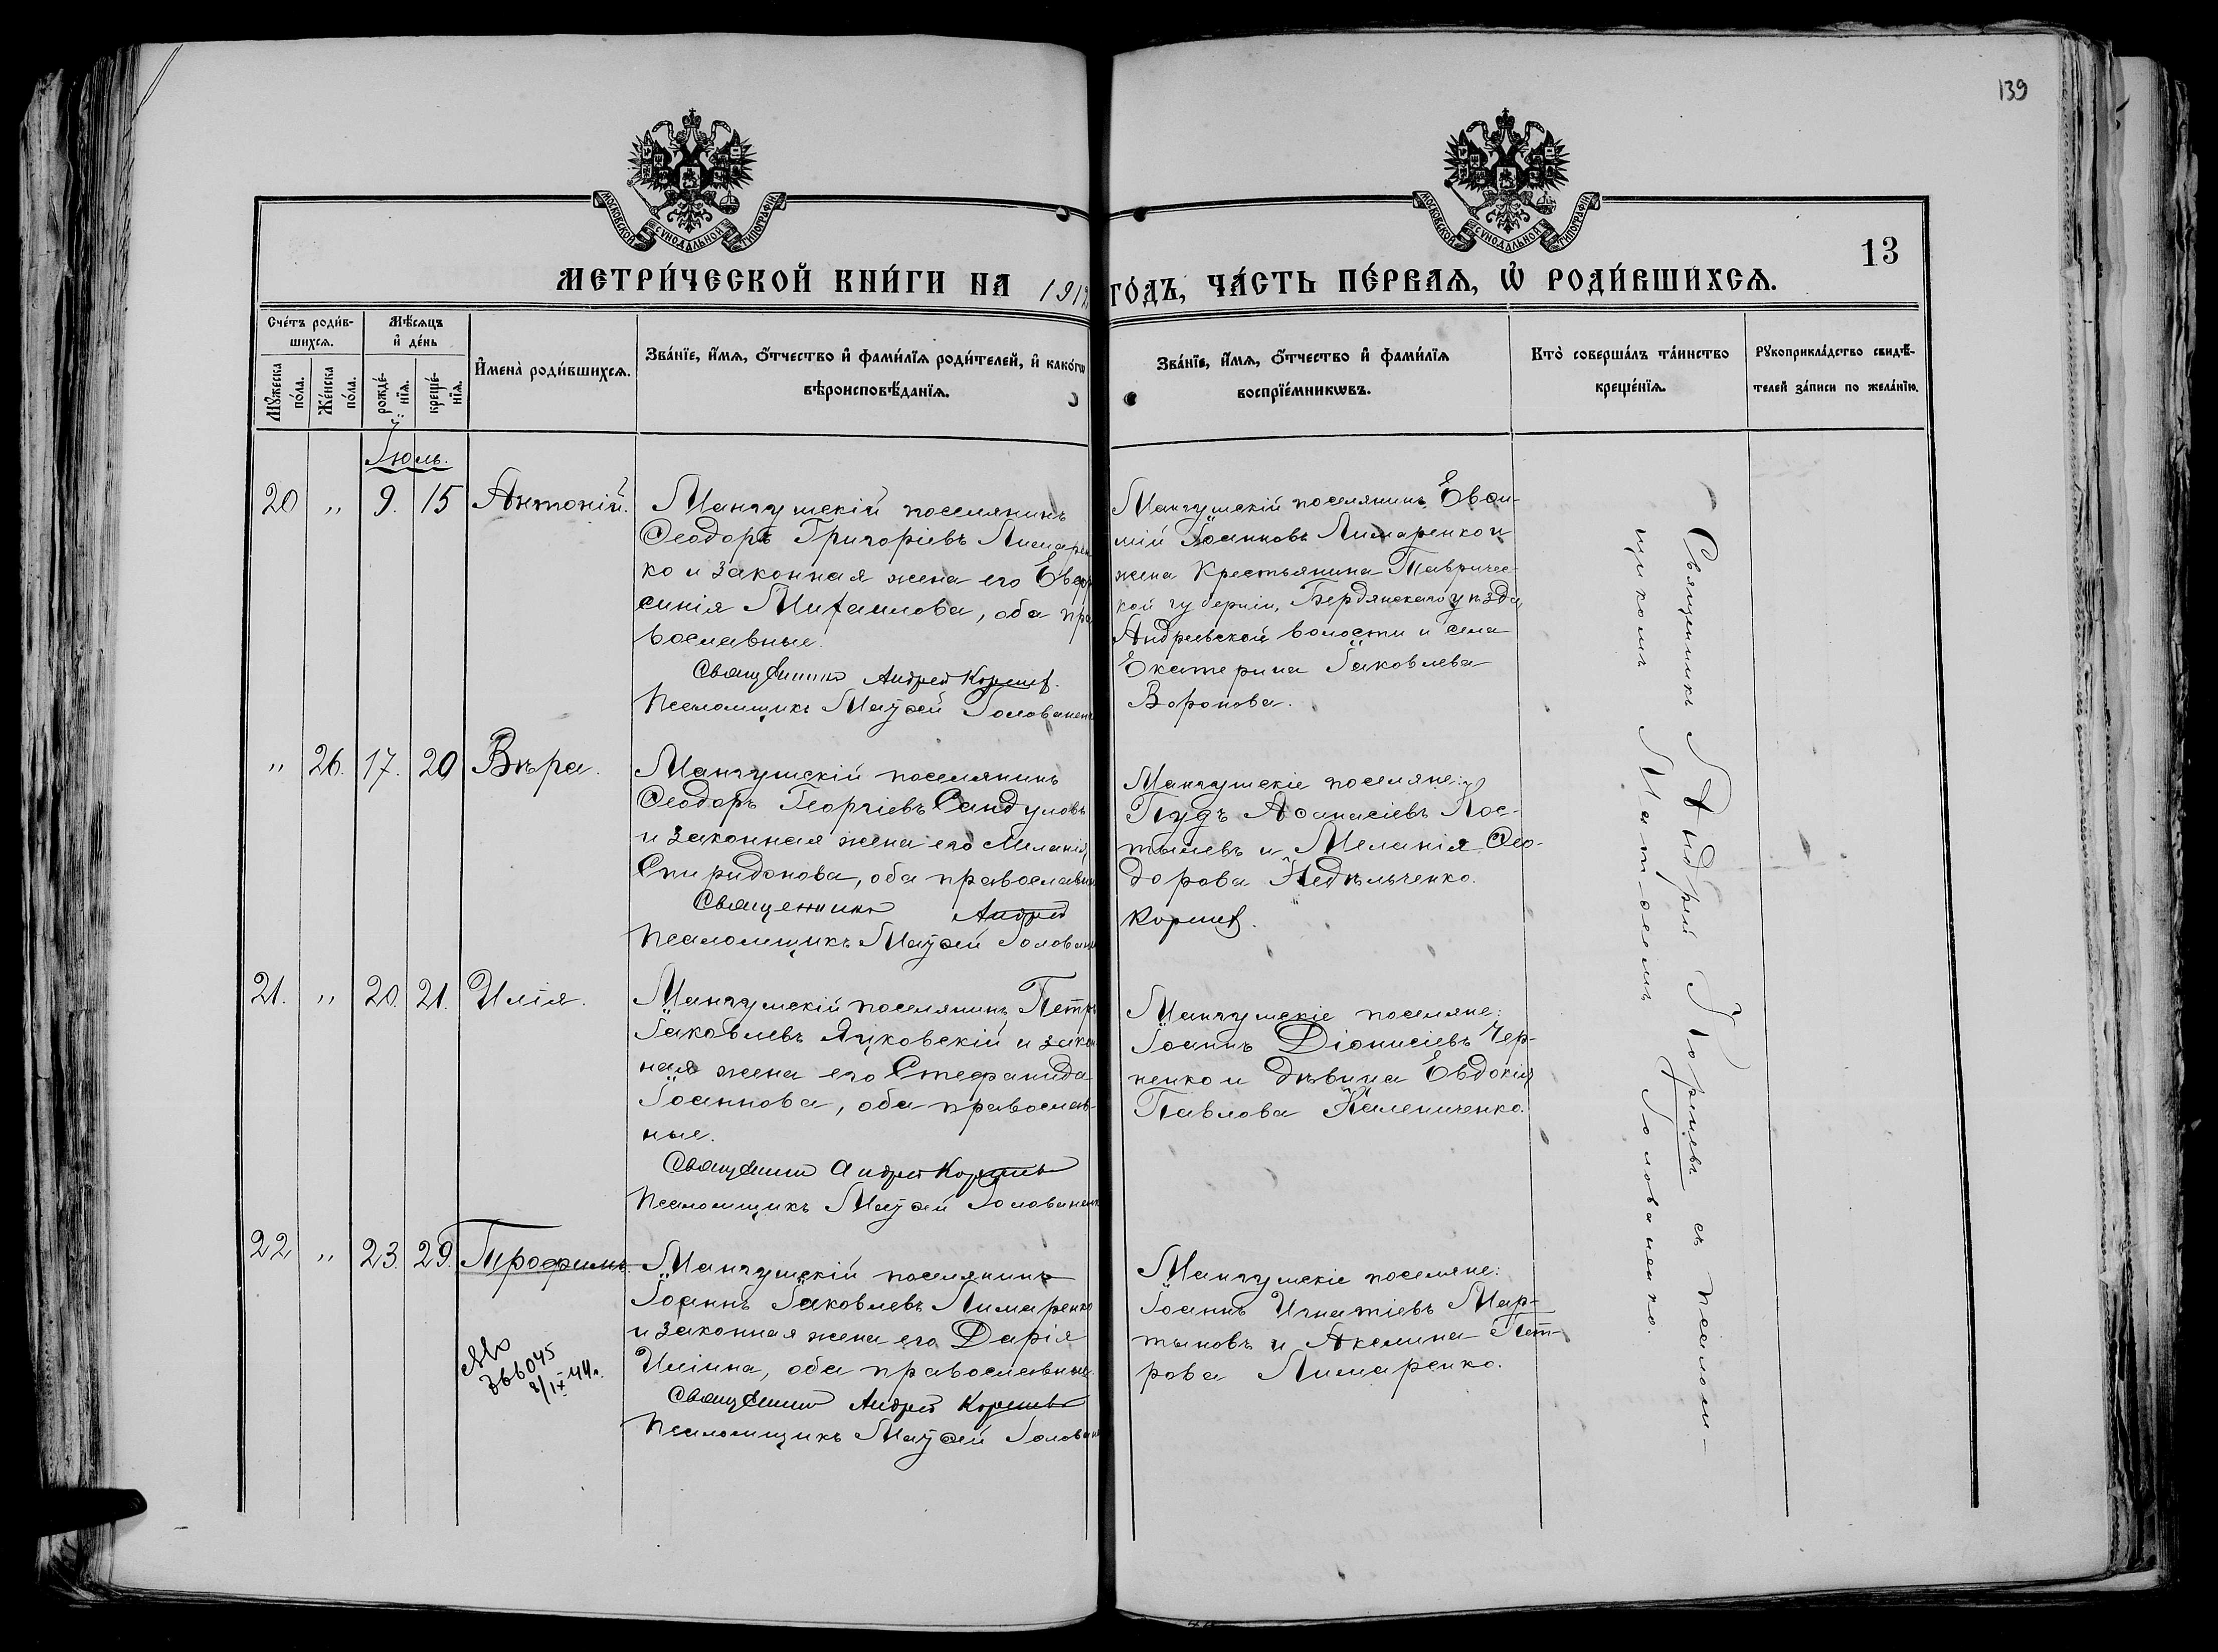 139
МОСКОВСКОЙ СѴНОДАЛЬНОЙ ТИПОГРАФІИ
МОСКОВСКОЙ СѴНОДАЛЬНОЙ ТИПОГРАФІИ
13
МЕТРИ́ЧЕСКОЙ КНИ́ГИ НА 191
ГО́ДЪ, ЧА́СТЬ ПЕ́РВАѦ, Ѽ РОДИ́ВШИХСѦ.
Сче́тъ роди́в-
шихсѧ.
Мꙋ́жеска по́ла.
Же́нска по́ла.
Мѣ́сѧцъ и҆ де́нь
рожде́-нїѧ.
креще́-нїѧ.
И҆мена̀ роди́вшихсѧ.
Зва́нїе, и҆́мѧ, ѻ҆́тчество и҆ фами́лїѧ роди́телей, и҆ како́гѡ
вѣроисповѣ́данїѧ.
Зва́нїе, и҆́мѧ, ѻ҆́тчество и҆ фами́лїѧ
воспрїе́мникѡвъ.
Кто̀ соверша́лъ та́инство
креще́нїѧ.
Рꙋкоприкла́дство свидѣ́-
телей за́писи по жела́нїю.
Іюль.
20 " 9. 15 Антоній.
Мангушскій поселянинъ
Ѳеодоръ Григоріевъ Лимарен
ко и законная жена его Евфро
синія Михаилова, оба пра
вославные.
Священникъ Андрей Коршев.
Псаломщикъ Матѳей Голованен
Мангушскій поселянинъ Евѳи-
мій Іоанновъ Лимаренко и
жена Крестьянина Тавричес-
кой губерніи, Бердянскаго уѣзда,
Андреевской волости и села
Екатерина Іаковлева
Воронова.
" 26. 17. 20 Вѣра.
Мангушскій поселянинъ
Ѳеодоръ Георгіевъ Сандуловъ
и законная жена его Меланія
Спиридонова, оба православн
Священникъ Андрей
Псаломщикъ Матѳей Голован
Мангушскіе поселяне:
Пудъ Аѳанасіевъ Кос-
тылевъ и Меланія Ѳео-
дорова Недѣльченко.
Коршев.
21. " 20. 21. Илія.
Мангушскій поселянинъ Петръ
Іаковлевъ Яцковскій и закон
ная жена его Стефанида
Іоаннова, оба православ-
ные.
Священник Андрей Коршевъ
Псаломщикъ Матѳей Голованен
Мангушскіе поселяне:
Іоаннъ Діонисіевъ Чер-
ненко и дѣвица Евдокія
Павлова Калениченко.
22 " 23. 29. Трофимъ.
Мангушскій поселянинъ
Іоаннъ Іаковлевъ Лимаренко
и законная жена его Дарія
Иліина, оба православные.
Священник Андрей Коршевъ
Псаломщикъ Матѳей Голован
366045
8/IX 44г.
Мангушскіе поселяне:
Іоаннъ Игнатіевъ Мар-
тыновъ и Акелина Пет-
рова Лимаренко.
Священникъ Андрей Коршевъ съ псалом-
щикомъ Матѳеемъ Голованенко.